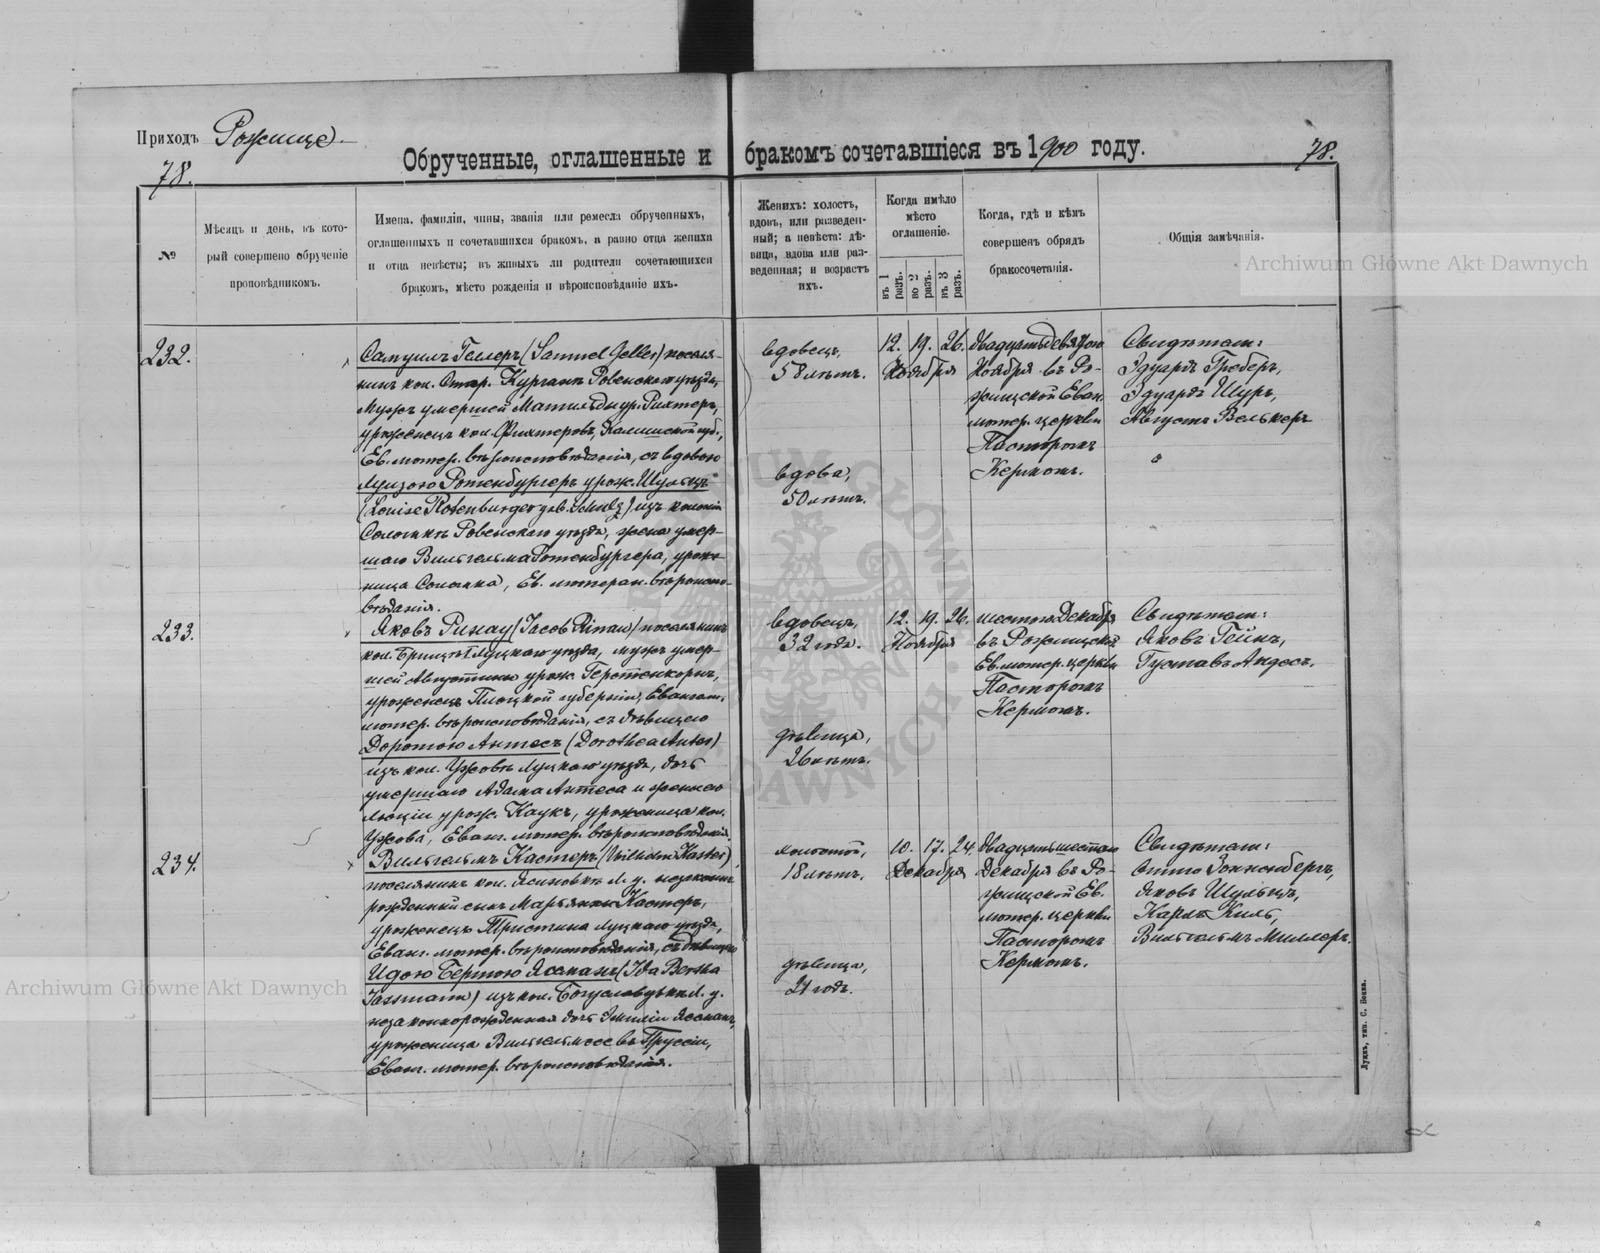 Приходъ Рожище
78.
78.
Обрученные, оглашенные и бракомъ сочетавшіеся въ 1900 году.
№
Мѣсяцъ и день, въ кото-
рый совершено обрученіе
проповѣдникомъ.
Имена, фамиліи, чины, званія или ремесла обрученныхъ,
оглашенныхъ и сочетавшихся бракомъ, а равно отца жениха
и отца невѣсты; въ живыхъ ли родители сочетающихся
бракомъ, мѣсто рожденія и вѣроисповѣданіе ихъ.
Женихъ: холостъ,
вдовъ, или разведен-
ный; а невѣста: дѣ-
вица, вдова или раз-
веденная; и возрастъ
ихъ.
Когда имѣло
мѣсто
оглашеніе.
въ 1 разъ.
во 2 разъ.
въ 3 разъ.
Когда, гдѣ и кѣмъ
совершенъ обрядъ
бракосочетанія.
Общія замѣчанія.
Archiwum Główne Akt Dawnych
232.
Самуилъ Геллеръ (Samuel Geller) поселя-
нинъ кол. Стар. Курганъ Ровенскаго уѣзда,
мужъ умершей Матильды ур. Рихтеръ,
уроженецъ кол. Калишской губ.,
Ев. лютер. вѣроисповѣданія, съ вдовою
Луизою Ротенбургеръ урож. Шульцъ
(Louise Rotenburger geb. Schulz) изъ колоніи
Ровенскаго уѣзда, жена умер-
шаго Вильгельма Ротенбургера, уроже-
ница, Ев. лютеран. вѣроиспо-
вѣданія.
вдовецъ,
58 лѣтъ.
вдова,
50 лѣтъ.
12. 19. 26.
Ноября
двадцать девятаго
Ноября въ Ро-
жищской Еван.
лютер. церкви
Пасторомъ
Керномъ.
Свидѣтели:
Эдуардъ Греберъ,
Эдуардъ Шуръ,
Августъ Велькеръ
233.
Яковъ Ринау (Jacob Rinau) поселянинъ
кол. Луцкаго уѣзда, мужъ умер-
шей Августины урож. Герстенкорнъ,
уроженецъ Плоцкой губерніи, Евангел.
лютер. вѣроисповѣданія, съ дѣвицею
Доротою Антесъ (Dorothea Antes)
изъ кол. Ужовъ Луцкаго уѣзда, дочь
умершаго Адама Антеса и жены его
урож. Каукъ, уроженица кол.
Ужова, Еванг. лютер. вѣроисповѣданія.
вдовецъ,
32 года.
дѣвица,
26 лѣтъ.
12. 19. 26.
Ноября
шестого Декабря
въ Рожищской
Ев. лютер. церкви
Пасторомъ
Керномъ.
Свидѣтели:
Яковъ Гейнъ,
Густавъ Андесъ.
234.
Вильгельмъ Кастеръ (Wilhelm Kaster),
поселянинъ кол. Ясиновка Л. у. незаконно
рожденный сынъ Марьянны Кастеръ,
уроженецъ Тристина Луцкаго уѣзда,
Еванг. лютер. вѣроисповѣданія, съ дѣвицею
Идою Бертою Ясманъ (Ida Bertha
Jassmann) изъ кол. Богуславувка Л. у.
незаконнорожденная дочь Эмиліи Ясманъ,
уроженица въ Пруссіи,
Еванг. лютер. вѣроисповѣданія.
холостой,
18 лѣтъ.
дѣвица,
21 годъ.
10. 17. 24.
Декабря
двадцать шестаго
Декабря въ Ро-
жищской Ев.
лютер. церкви
Пасторомъ
Керномъ.
Свидѣтели:
Отто Зонненбергъ,
Яковъ Шульцъ,
Карлъ Киль,
Вильгельмъ Миллеръ.
Archiwum Główne Akt Dawnych
Луцкъ, тип. С. Бенка.